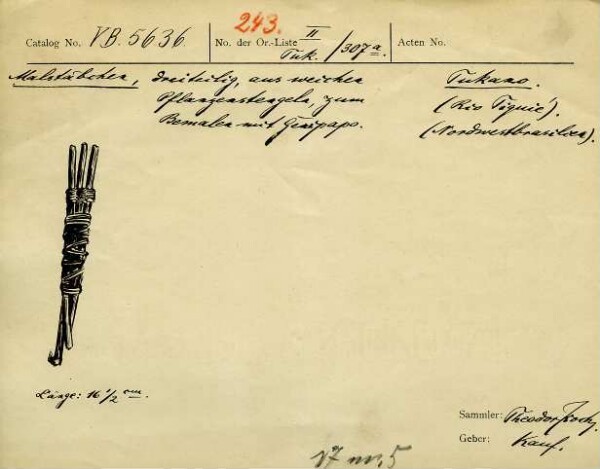 Catalog No. VB. 5636.
243.
No. der Or.-Liste II Tuk. / 307a.
Acten No.
Malstäbchen, dreiteilig, aus weichen
Pflanzenstengeln, zum
Bemalen mit Genipapo.
Tukano.
(Rio Tiquié).
(Nordwestbrasilien).
Länge: 16 1/2 cm.
Sammler: Theodor Koch.
Geber: Kauf.